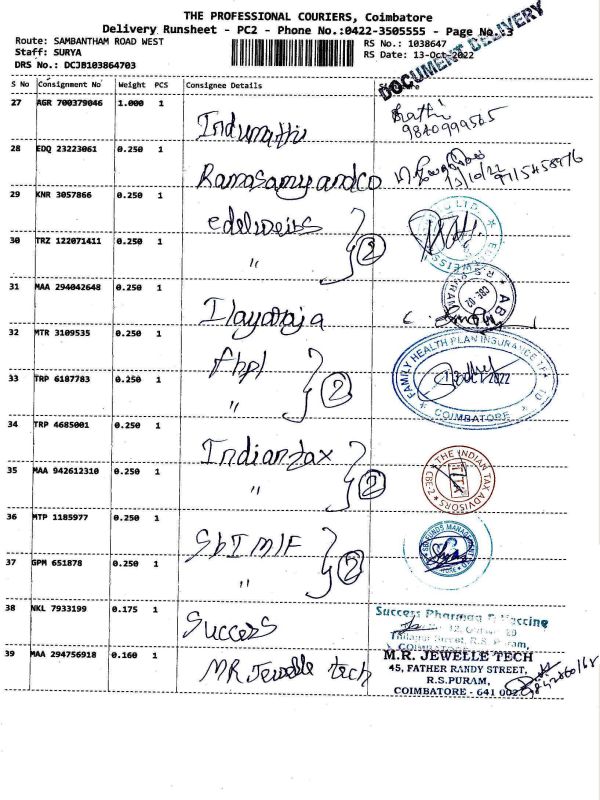 THE PROFESSIONAL COURIERS, Coimbatore
Delivery Runsheet - PC2 - Phone No.:0422-3505555 - Page No.:3
Route: SAMBANTHAM ROAD WEST
RS No.: 1038647
Staff: SURYA
RS Date: 13-Oct-2022
DRS No.: DCJB103864703
DOCUMENT DELIVERY
S No Consignment No Weight PCS Consignee Details
27 AGR 700379046 1.000 1 Indumathi
9840999565
28 EDQ 23223061 0.250 1 Ramasamy and co
13/10/22
29 KNR 3057866 0.250 1 edelweiss
30 TRZ 122071411 0.250 1 " 2
31 MAA 294042648 0.250 1 Ilayaraja
R.S. PURAM
CBE-02
32 MTR 3109535 0.250 1 fhpl
33 TRP 6187783 0.250 1 " 2
FAMILY HEALTH PLAN INSURANCE
COIMBATORE
34 TRP 4685001 0.250 1 Indian tax
35 MAA 942612310 0.250 1 " 2
THE INDIAN TAX ADVISORS
CBE-2
36 MTP 1185977 0.250 1 SbI MF
37 GPM 651878 0.250 1 " 2
38 NKL 7933199 0.175 1 Success
Success Pharma
39 MAA 294756918 0.160 1 MR Jewelle tech
M.R. JEWELLE TECH
45, FATHER RANDY STREET,
R.S.PURAM,
COIMBATORE - 641 002